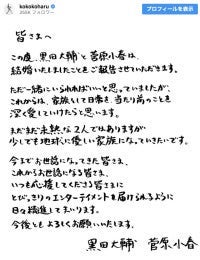 kokokoharu
プロフィールを表示
皆さまへ
この度、黒田大輔と菅原小春は、
結婚いたしましたことをご報告させていただきます。
ただ一緒にいられればいいと思っていましたが、
これからは、家族として日常を、当たり前のことを
深く愛していけたらと思います。
まだまだ未熟な2人ではありますが
少しでも地球に優しい家族になっていきたいです。
今までお世話になってきた皆さま、
これからお世話になる皆さま、
いつも応援してくださる皆さまに
とびっきりのエンターテイメントを届けられるように
日々精進してまいります。
今後ともよろしくお願いいたします。
黒田大輔 菅原小春